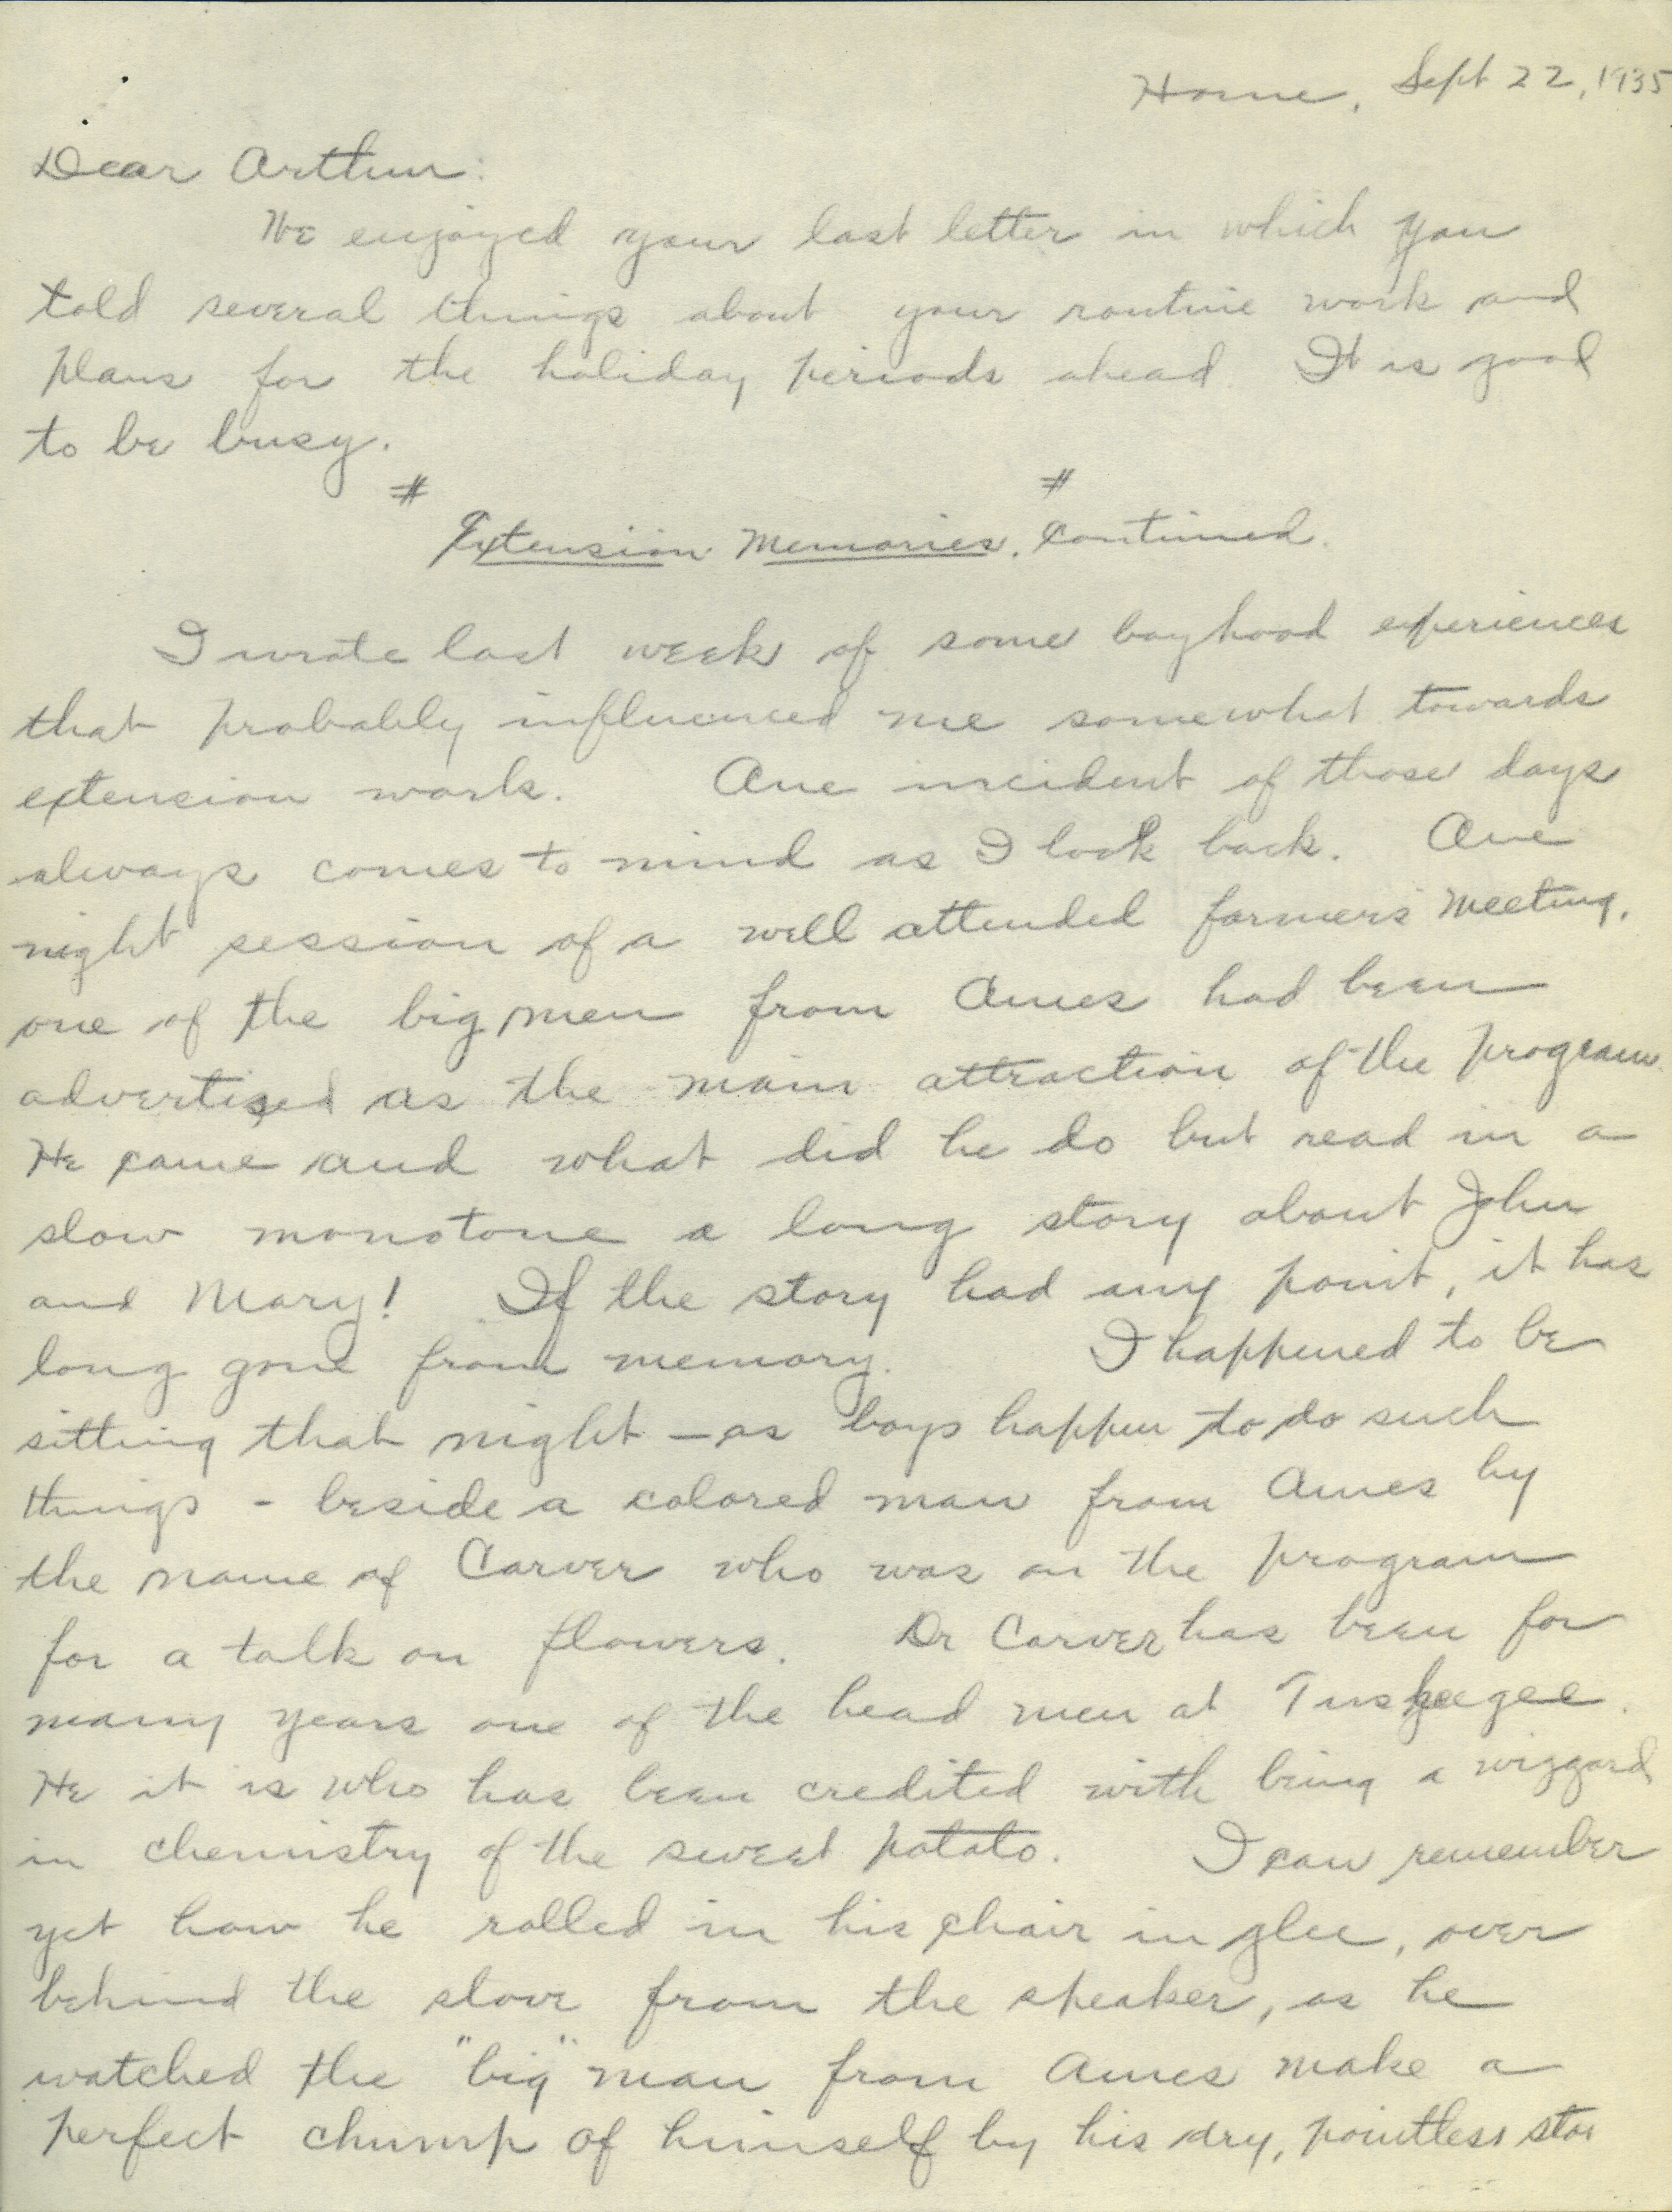 Home, Sept 22, 1935
Dear Arthur:
We enjoyed your last letter in which you
told several things about your routine work and
plans for the holiday periods ahead. It is good
to be busy.
# #
Extension Memories, Continued.
I wrote last week of some boyhood experiences
that probably influenced me somewhat towards
extension work. One incident of those days
always comes to mind as I look back. One
night session of a well attended farmers' meeting,
one of the big men from Ames had been
advertised as the main attraction of the program.
He came and what did he do but read in a
slow monotone a long story about John
and Mary! If the story had any point, it has
long gone from memory. I happened to be
sitting that night - as boys happen to do such
things - beside a colored man from Ames by
the name of Carver who was on the program
for a talk on flowers. Dr Carver has been for
many years one of the head men at Tuskeegee.
He it is who has been credited with being a wizzard
in chemistry of the sweet potato. I can remember
yet how he rolled in his chair in glee, over
behind the stove from the speaker, as he
watched the "big" man from Ames make a
perfect chump of himself by his dry, pointless stor